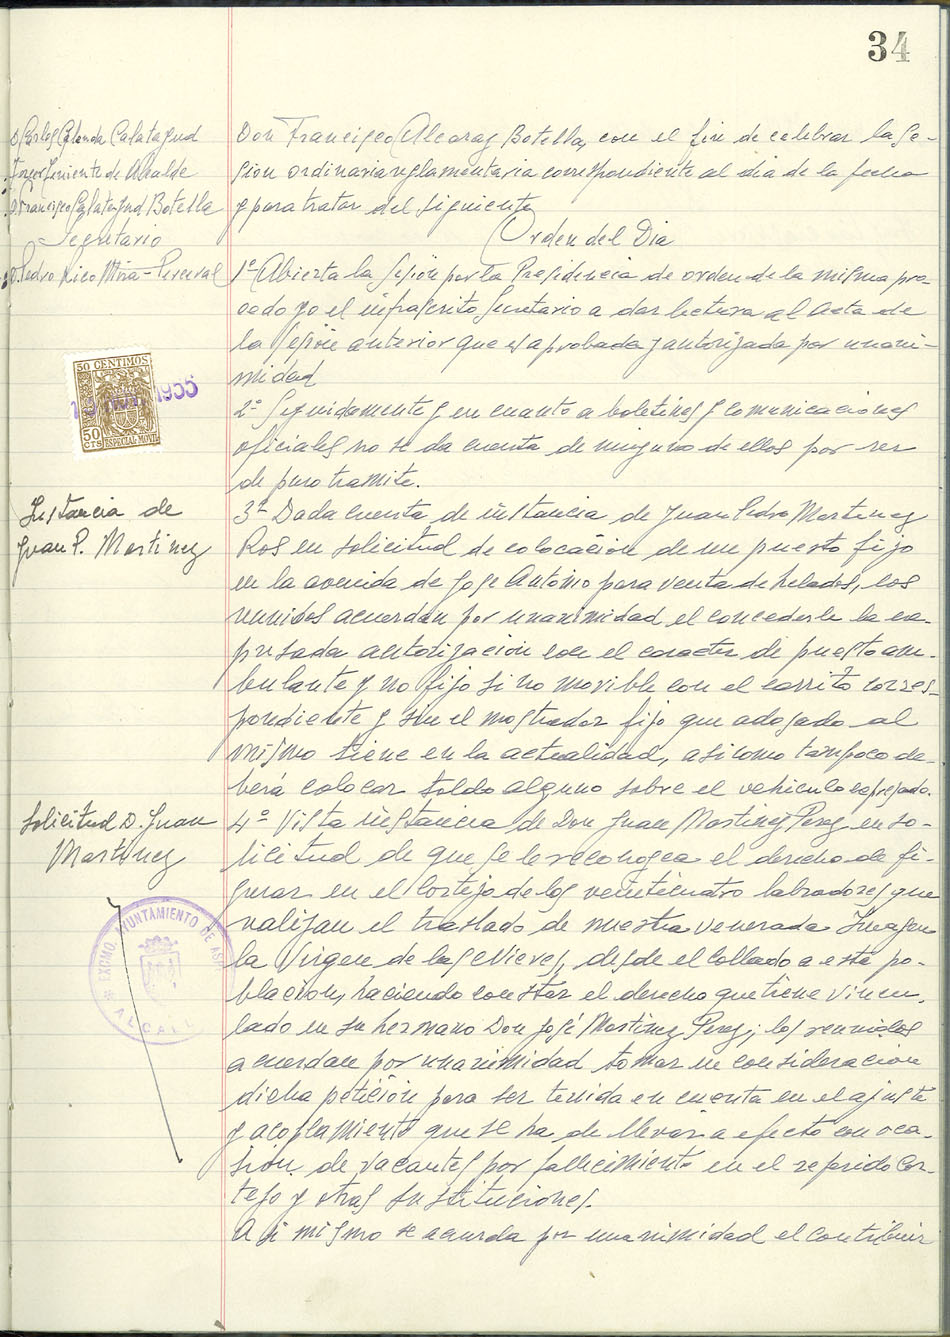 34
D. Carlos Calenda Calatayud
Tercer Teniente de Alcalde
D. Francisco Calatayud Botella
Secretario
D. Pedro Rico Mira-Perceval
Don Francisco Alcaraz Botella, con el fin de celebrar la se-
sion ordinaria reglamentaria correspondiente al dia de la fecha
y para tratar del siguiente
Orden del Dia
1º Abierta la sesion por la Presidencia de orden de la misma pro-
cedo yo el infrascrito Secretario a dar lectura al acta de
la sesion anterior que es aprobada y autorizada por unani-
midad
50 CENTIMOS
1955
50 CTS ESPECIAL MOVIL
2º Seguidamente y en cuanto a boletines y comunicaciones
oficiales no se da cuenta de ninguno de ellos por ser
de puro tramite.
Instancia de
Juan P. Martinez
3º Dada cuenta de instancia de Juan Pedro Martinez
Ros en solicitud de colocación de un puesto fijo
en la avenida de Jose Antonio para venta de helados, los
reunidos acuerdan por unanimidad el concederle la ex-
presada autorización con el caracter de puesto am-
bulante y no fijo si no movible con el carrito corres-
pondiente y sin el mostrador fijo que adosado al
mismo tiene en la actualidad, asi como tampoco de-
berá colocar toldo alguno sobre el vehiculo expresado.
Solicitud D. Juan
Martinez
4º Vista instancia de Don Juan Martinez Perez en so-
licitud de que se le reconozca el derecho de fi-
gurar en el cortejo de los veinticuatro labradores que
realizan el traslado de nuestra venerada Imagen
la Virgen de las Nieves, desde el collado a esta po-
blacion, haciendo constar el derecho que tiene vincu-
lado en su hermano Don José Martinez Perez; los reunidos
acuerdan por unanimidad tomar en consideracion
dicha petición para ser tenida en cuenta en el ajuste
y acoplamiento que se ha de llevar a efecto con oca-
sion de vacantes por fallecimiento en el referido cor-
tejo y otras sustituciones.
Asi mismo se acuerda por unanimidad el contribuir
EXCMO. AYUNTAMIENTO DE ASPE
ALCALD